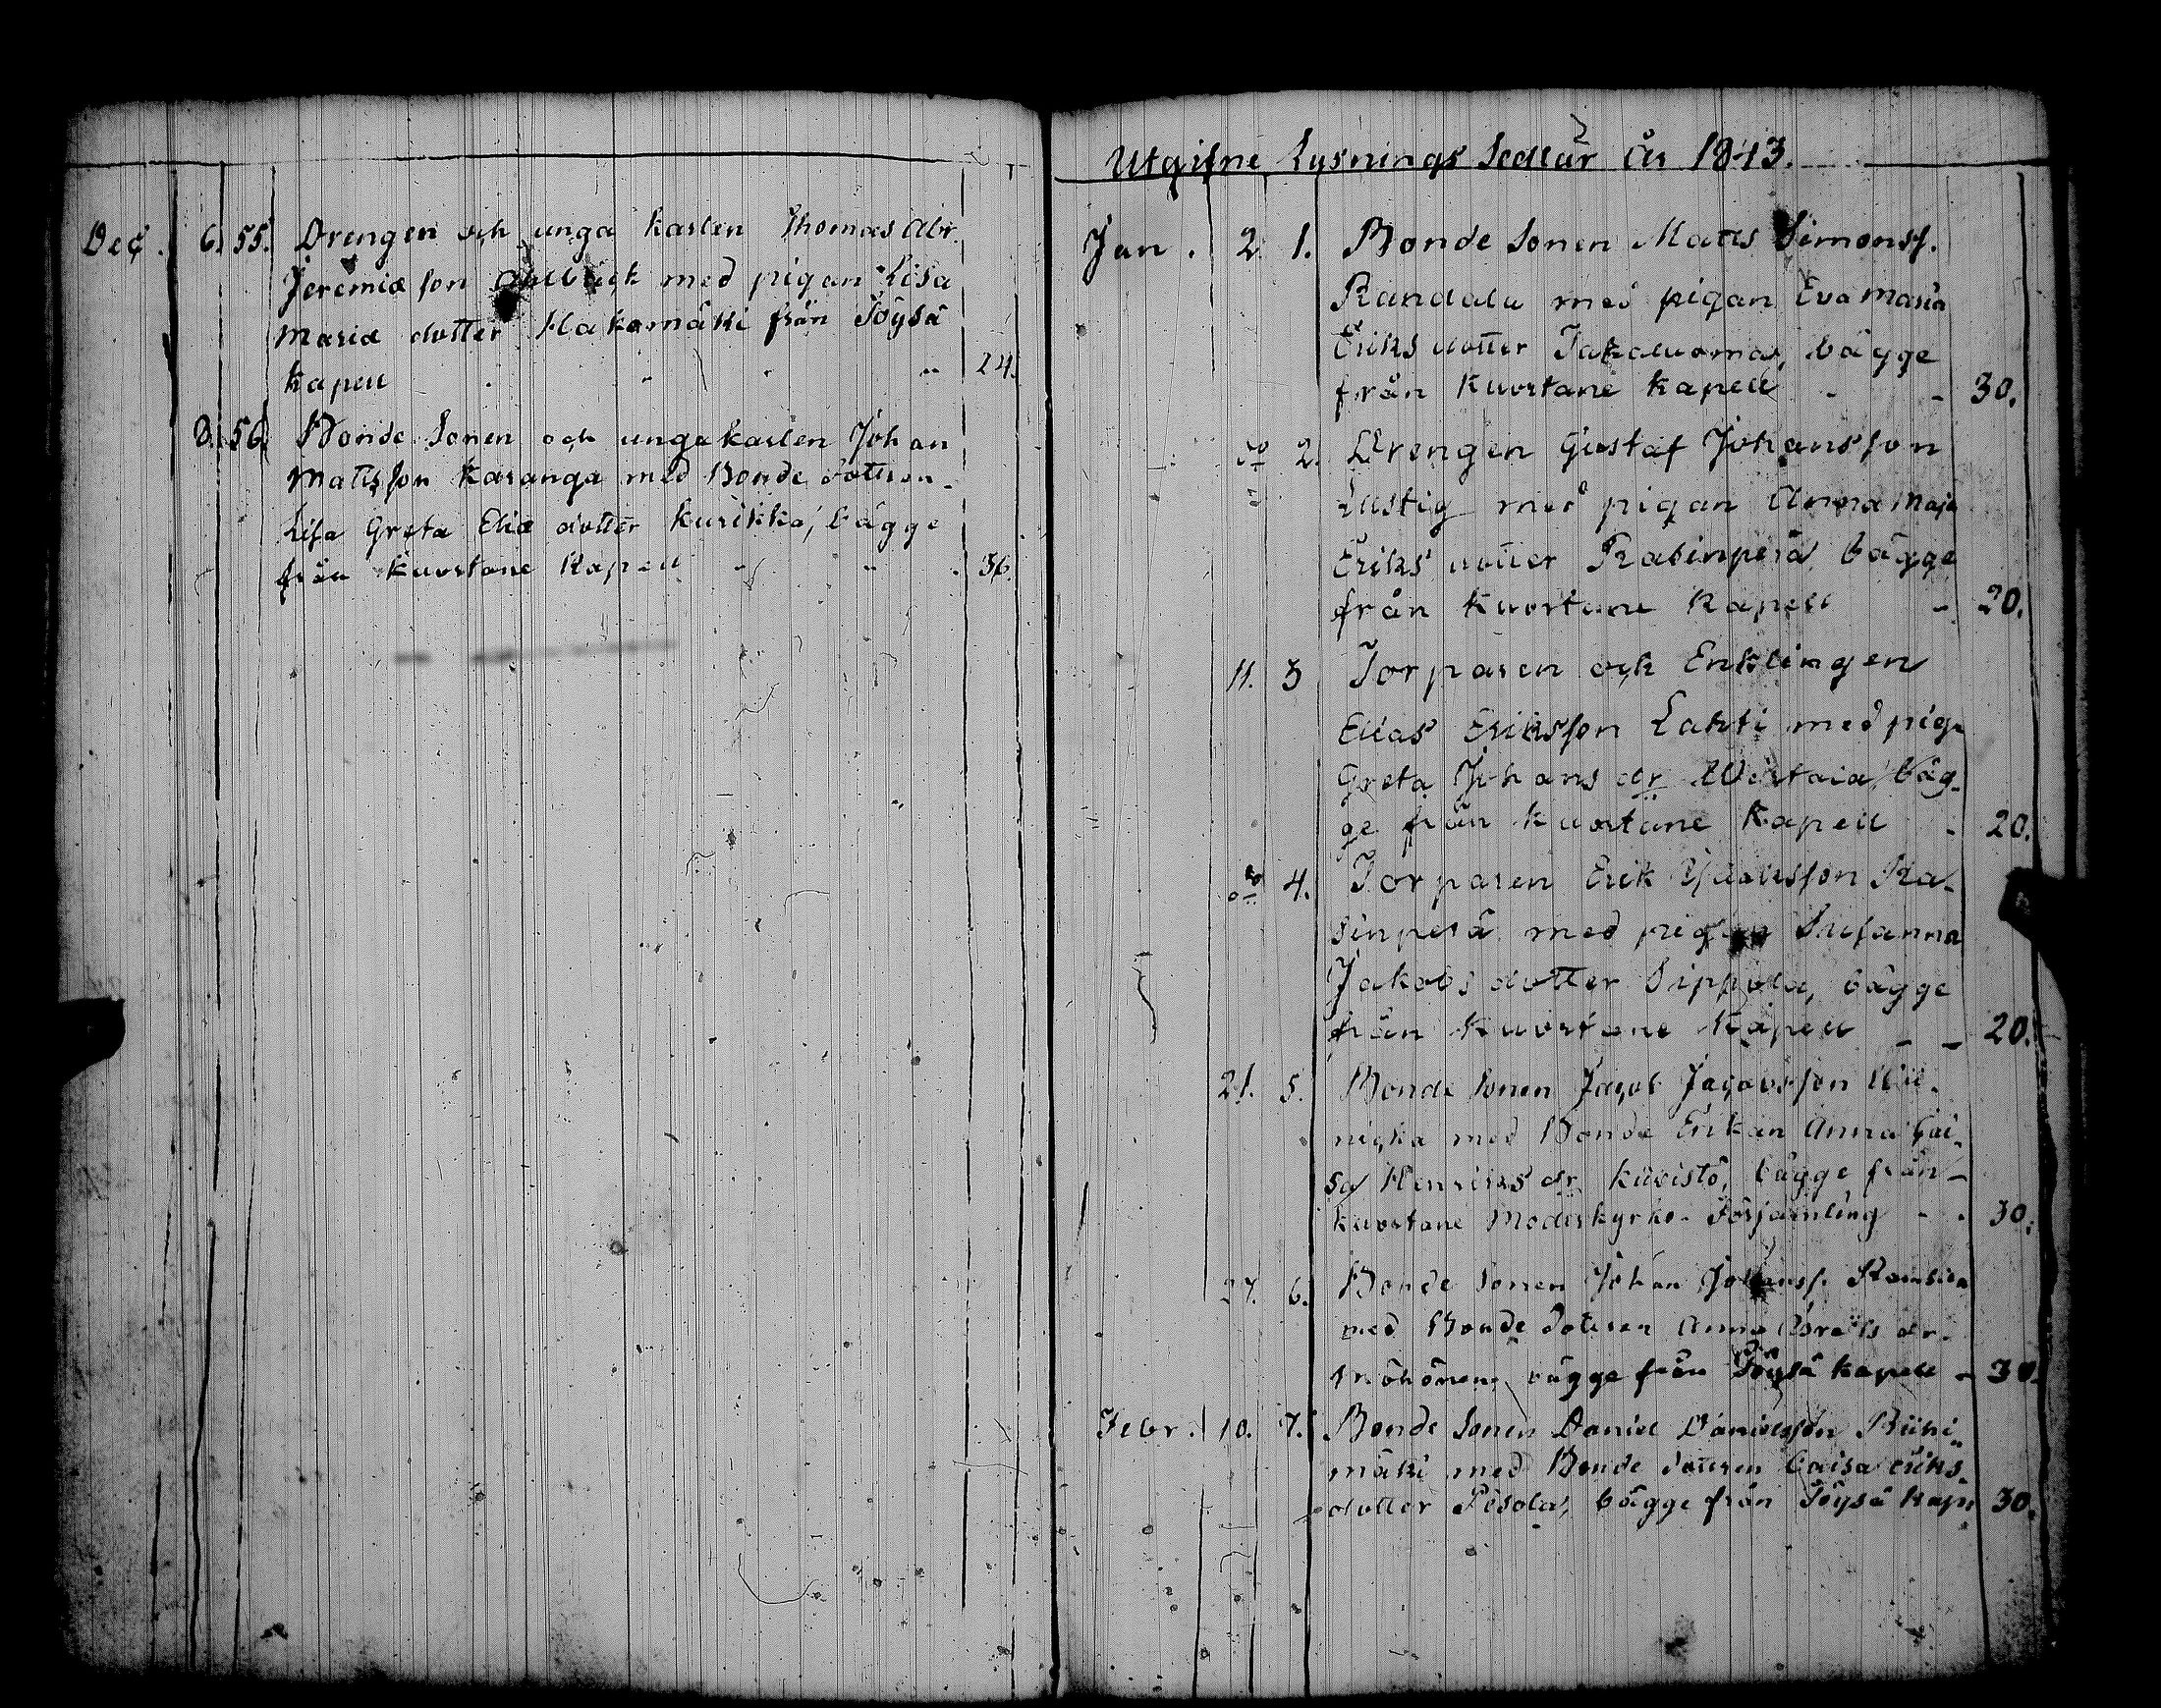 Dec. 6. 55. Drengen och unga karlen Thomas Abr.
Jeremiæ son med pigan Lisa
Maria dotter Hakomäki från Töysä
Kapell 24.
D. 56. Bonde Sonen och ungakarlen Johan
Matisson Karanga med Bonde dottren
Lisa Greta Eliæ dotter Kurikka, bägge
från Kuortane Kapell 36.
Utgifne Lysnings Sedlar år 1843.
Jan. 2. 1. Bonde Sonen Matts Simonss.
Randala med pigan Eva Maria
Eriks dotter Takaluoma, bägge
från Kuortane Kapell - - 30.
do 2. Drengen Gustaf Johansson
Lustig med pigan Anna Maja
Eriks dotter Rasinperä bägge
från Kuortane Kapell - 20.
11. 3 Torparen och Enklingen
Elias Eriksson Lahti med pig.
Greta Johans dr bäg-
ge från Kuortane Kapell - 20.
do 4. Torparen Erik Ra-
sinperä med pigan Susanna
Jakobs dotter Sippola, bägge
från Kuortane Kapell - - 20.
21. 5. Bonde Sonen Jacob Jacobsson
med Bonde Enkan Anna Cai-
sa Henriks dr Kuivisto, bägge från
Kuortane Moderkyrko-Församling - - 30.
27. 6. Bonde Sonen Johan Johanss.
med Bonde dottren Anna dr.
bägge från Töysä Kapell - 30.
Febr. 10. 7. Bonde Sonen Daniel Danielsson Riihi-
mäki med Bonde dottren Caisa Eriks-
dotter Pesola, bägge från Töysä Kape 30.